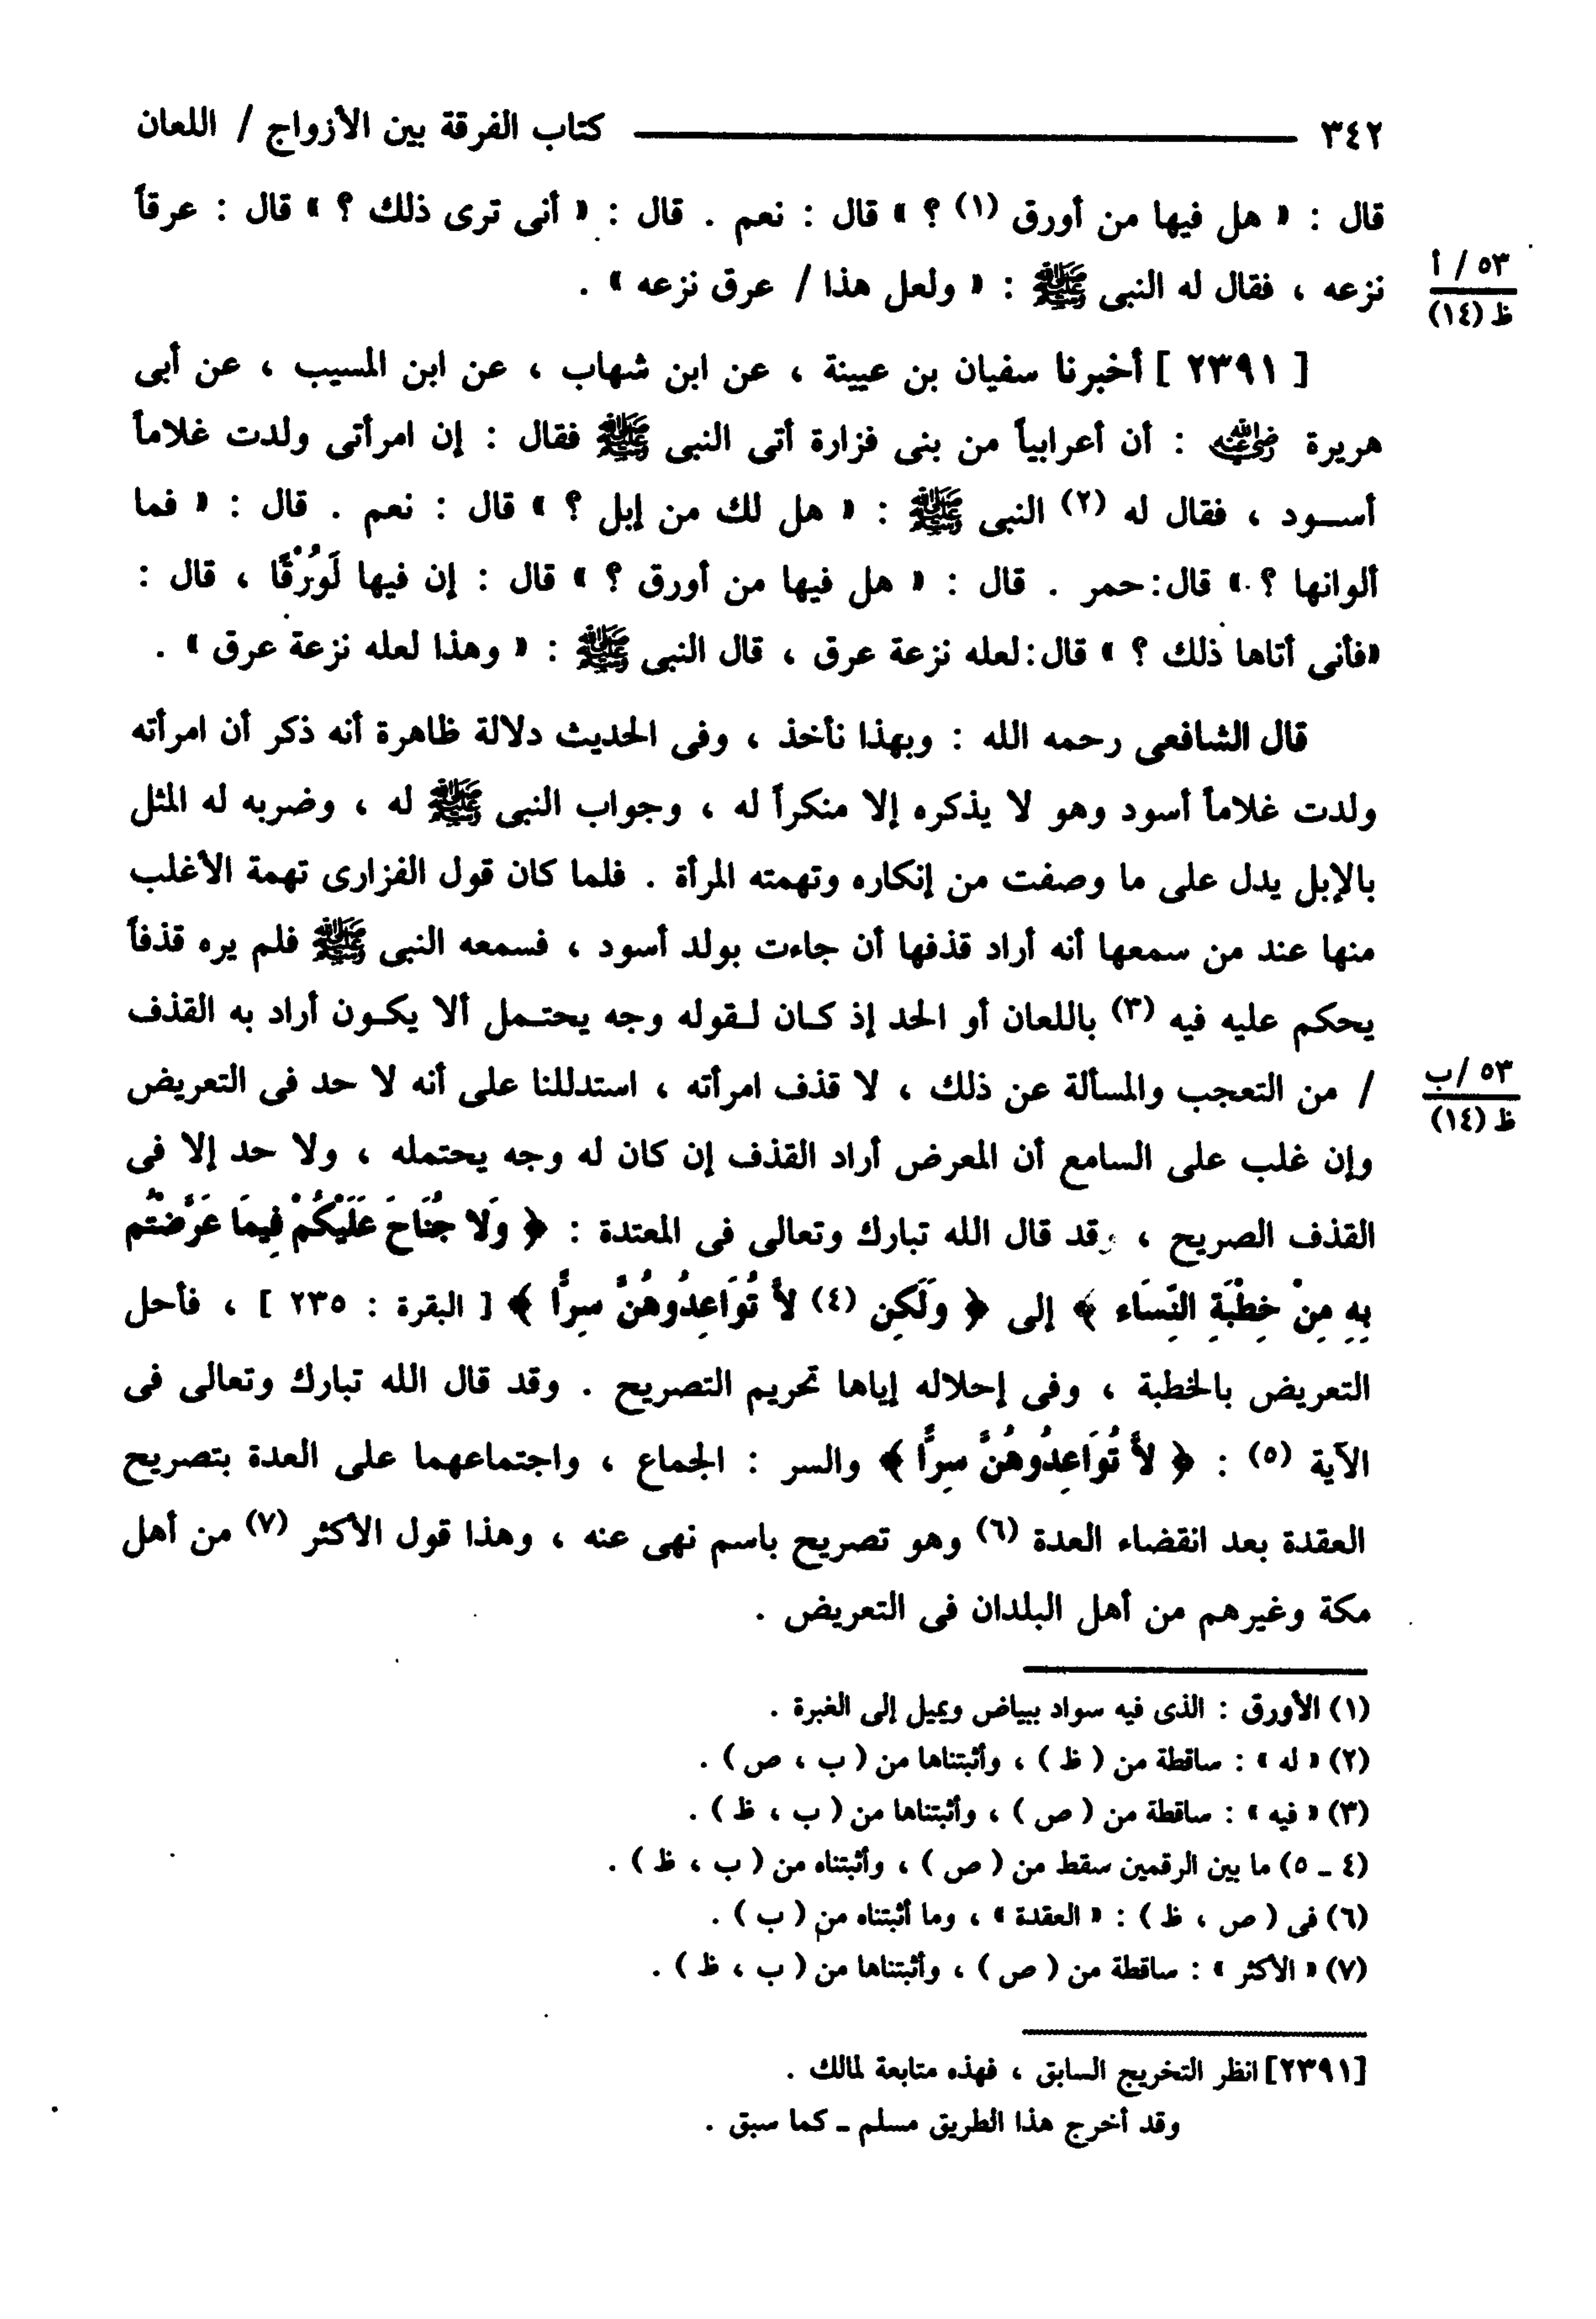 ٣٤٢ ــــــــــــــــــــــــــــ كتاب الفرقة بين الأزواج / اللعان
قال : « هل فيها من أورق (١) ؟ » قال : نعم . قال : « أنى ترى ذلك ؟ » قال : عرقاً
نزعه ، فقال له النبى ﷺ : « ولعل هذا / عرق نزعه » .
٥٣ / أ
ظ (١٤)
[ ٢٣٩١ ] أخبرنا سفيان بن عيينة ، عن ابن شهاب ، عن ابن المسيب ، عن أبى
هريرة رضي الله عنه : أن أعرابياً من بنى فزارة أتى النبى ﷺ فقال : إن امرأتى ولدت غلاماً
أسـود ، فقال له (٢) النبى ﷺ : « هل لك من إبل ؟ » قال : نعم . قال : « فما
ألوانها ؟ » قال : حمر . قال : « هل فيها من أورق ؟ » قال : إن فيها لَوُرْقًا ، قال :
«فأنى أتاها ذلك ؟ » قال : لعله نزعة عرق ، قال النبى ﷺ : « وهذا لعله نزعة عرق » .
قال الشافعى رحمه الله : وبهذا نأخذ ، وفى الحديث دلالة ظاهرة أنه ذكر أن امرأته
ولدت غلاماً أسود وهو لا يذكره إلا منكراً له ، وجواب النبى ﷺ له ، وضربه له المثل
بالإبل يدل على ما وصفت من إنكاره وتهمته المرأة . فلما كان قول الفزارى تهمة الأغلب
منها عند من سمعها أنه أراد قذفها أن جاءت بولد أسود ، فسمعه النبى ﷺ فلم يره قذفاً
يحكم عليه فيه (٣) باللعان أو الحد إذ كـان لـقوله وجه يحتـمل ألا يكـون أراد به القذف
/ من التعجب والمسألة عن ذلك ، لا قذف امرأته ، استدللنا على أنه لا حد فى التعريض
٥٣ /ب
ظ (١٤)
وإن غلب على السامع أن المعرض أراد القذف إن كان له وجه يحتمله ، ولا حد إلا فى
القذف الصريح ، وقد قال الله تبارك وتعالى فى المعتدة : ﴿ وَلا جُنَاحَ عَلَيْكُمْ فِيمَا عَرَّضْتُم
بِهِ مِنْ خِطْبَةِ النِّسَاء ﴾ إلى ﴿ وَلَكِن (٤) لأَ تُوَاعِدُوهُنَّ سِرًّا ﴾ [ البقرة : ٢٣٥ ] ، فأحل
التعريض بالخطبة ، وفى إحلاله إياها تحريم التصريح . وقد قال الله تبارك وتعالى فى
الآية (٥) : ﴿ لأَ تُوَاعِدُوهُنَّ سِرًّا ﴾ والسر : الجماع ، واجتماعهما على العدة بتصريح
العقدة بعد انقضاء العدة (٦) وهو تصريح باسم نهى عنه ، وهذا قول الأكثر (٧) من أهل
مكة وغيرهم من أهل البلدان فى التعريض .
(١) الأورق : الذى فيه سواد ببياض ويميل إلى الغبرة .
(٢) « له » : ساقطة من ( ظ ) ، وأثبتناها من ( ب ، ص ) .
(٣) « فيه » : ساقطة من ( ص ) ، وأثبتناها من ( ب ، ظ ) .
(٤ ـ ٥) ما بين الرقمين سقط من ( ص ) ، وأثبتناه من ( ب ، ظ ) .
(٦) فى ( ص ، ظ ) : « العقدة » ، وما أثبتناه من ( ب ) .
(٧) « الأكثر » : ساقطة من ( ص ) ، وأثبتناها من ( ب ، ظ ) .
[٢٣٩١] انظر التخريج السابق ، فهذه متابعة لمالك .
وقد أخرج هذا الطريق مسلم ـ كما سبق .